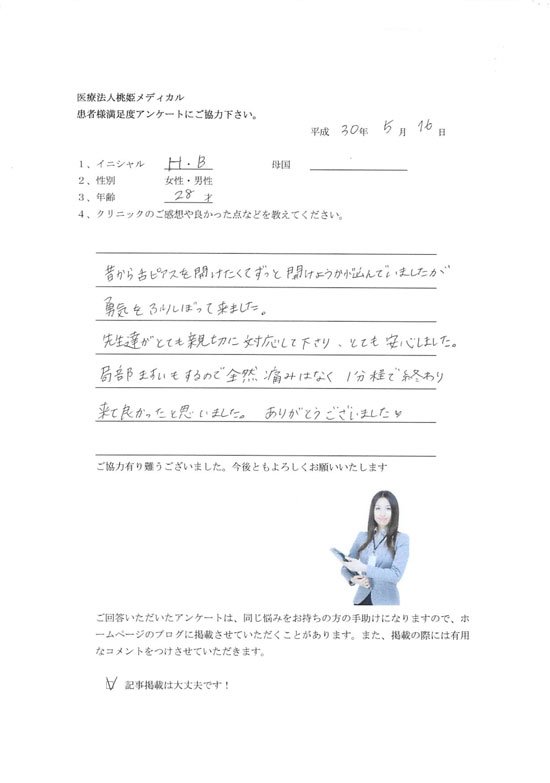 医療法人桃姫メディカル
患者様満足度アンケートにご協力下さい。
平成 30年 5月 16日
1、イニシャル H・B 母国
2、性別 女性・男性
3、年齢 28才
4、クリニックのご感想や良かった点などを教えてください。
昔から舌ピアスを開けたくてずっと開けようか悩んでいましたが
勇気をふりしぼって来ました。
先生達がとても親切に対応して下さり、とても安心しました。
局部ますいもするので全然痛みはなく 1分程で終わり
来て良かったと思いました。 ありがとうございました
ご協力有り難うございました。今後ともよろしくお願いいたします
ご回答いただいたアンケートは、同じ悩みをお持ちの方の手助けになりますので、ホ
ームページのブログに掲載させていただくことがあります。また、掲載の際には有用
なコメントをつけさせていただきます。
記事掲載は大丈夫です！